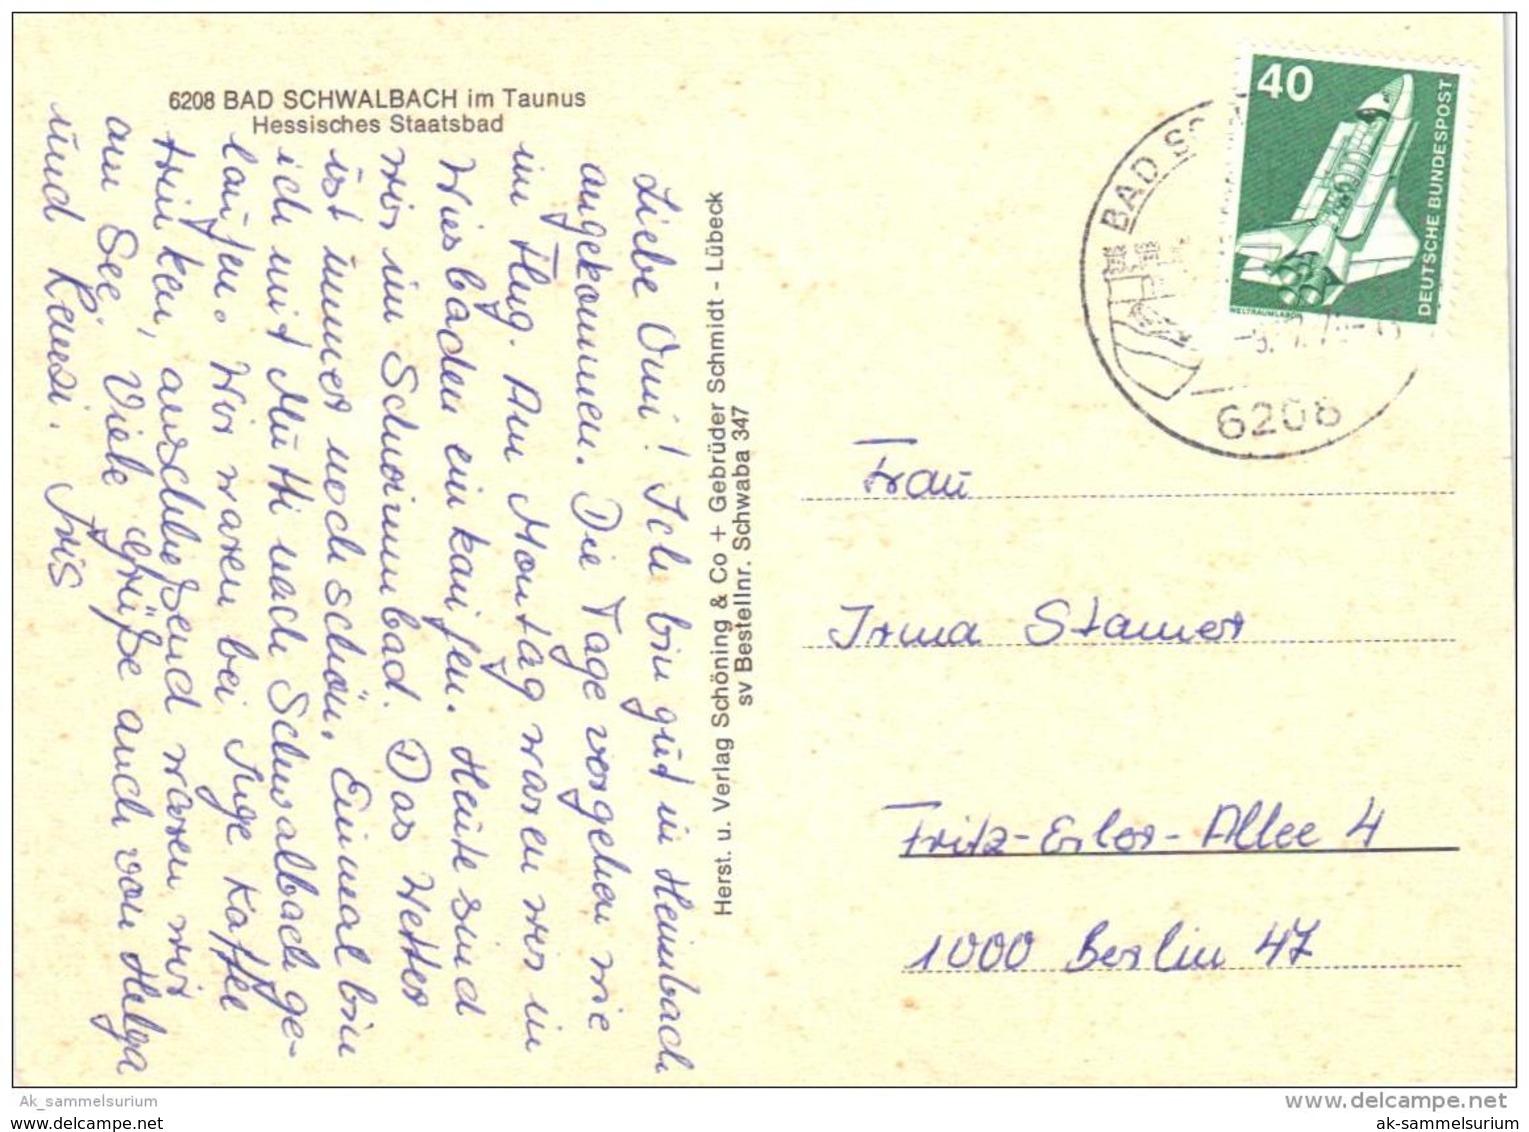 6208 BAD SCHWALBACH im Taunus
Hessisches Staatsbad
Liebe Omi! Ich bin gut in Heimbach
angekommen. Die Tage vergehen wie
im Flug. Am Montag waren wir in
Wiesbaden einkaufen. Heute sind
wir im Schwimmbad. Das Wetter
ist immer noch schön. Einmal bin
ich mit Mutti nach Schwalbach ge-
laufen. Wir waren bei Inge Kaffee
trinken, anschließend waren wir
am See. Viele Grüße auch von Helga
und Renesi. Iris
Herst. u. Verlag Schöning & Co + Gebrüder Schmidt - Lübeck
sv Bestellnr. Schwaba 347
40
DEUTSCHE BUNDESPOST
WELTRAUMLABOR
BAD
6208
Frau
Irma Stamer
Fritz-Erler-Allee 4
1000 Berlin 47
Ak_sammelsurium
www.delcampe.net
www.delcampe.net
ak-sammelsurium